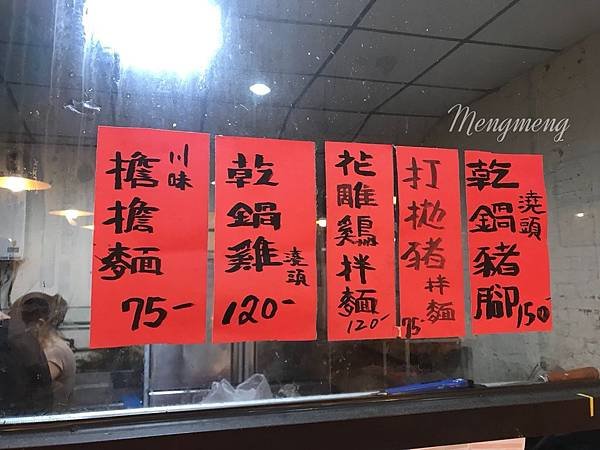 Mengmeng
川味
擔擔麵
75-
乾鍋雞
澆頭
120-
花雕鷄拌麵
120-
打拋豬
拌麵
75-
乾鍋豬腳
澆頭
150-